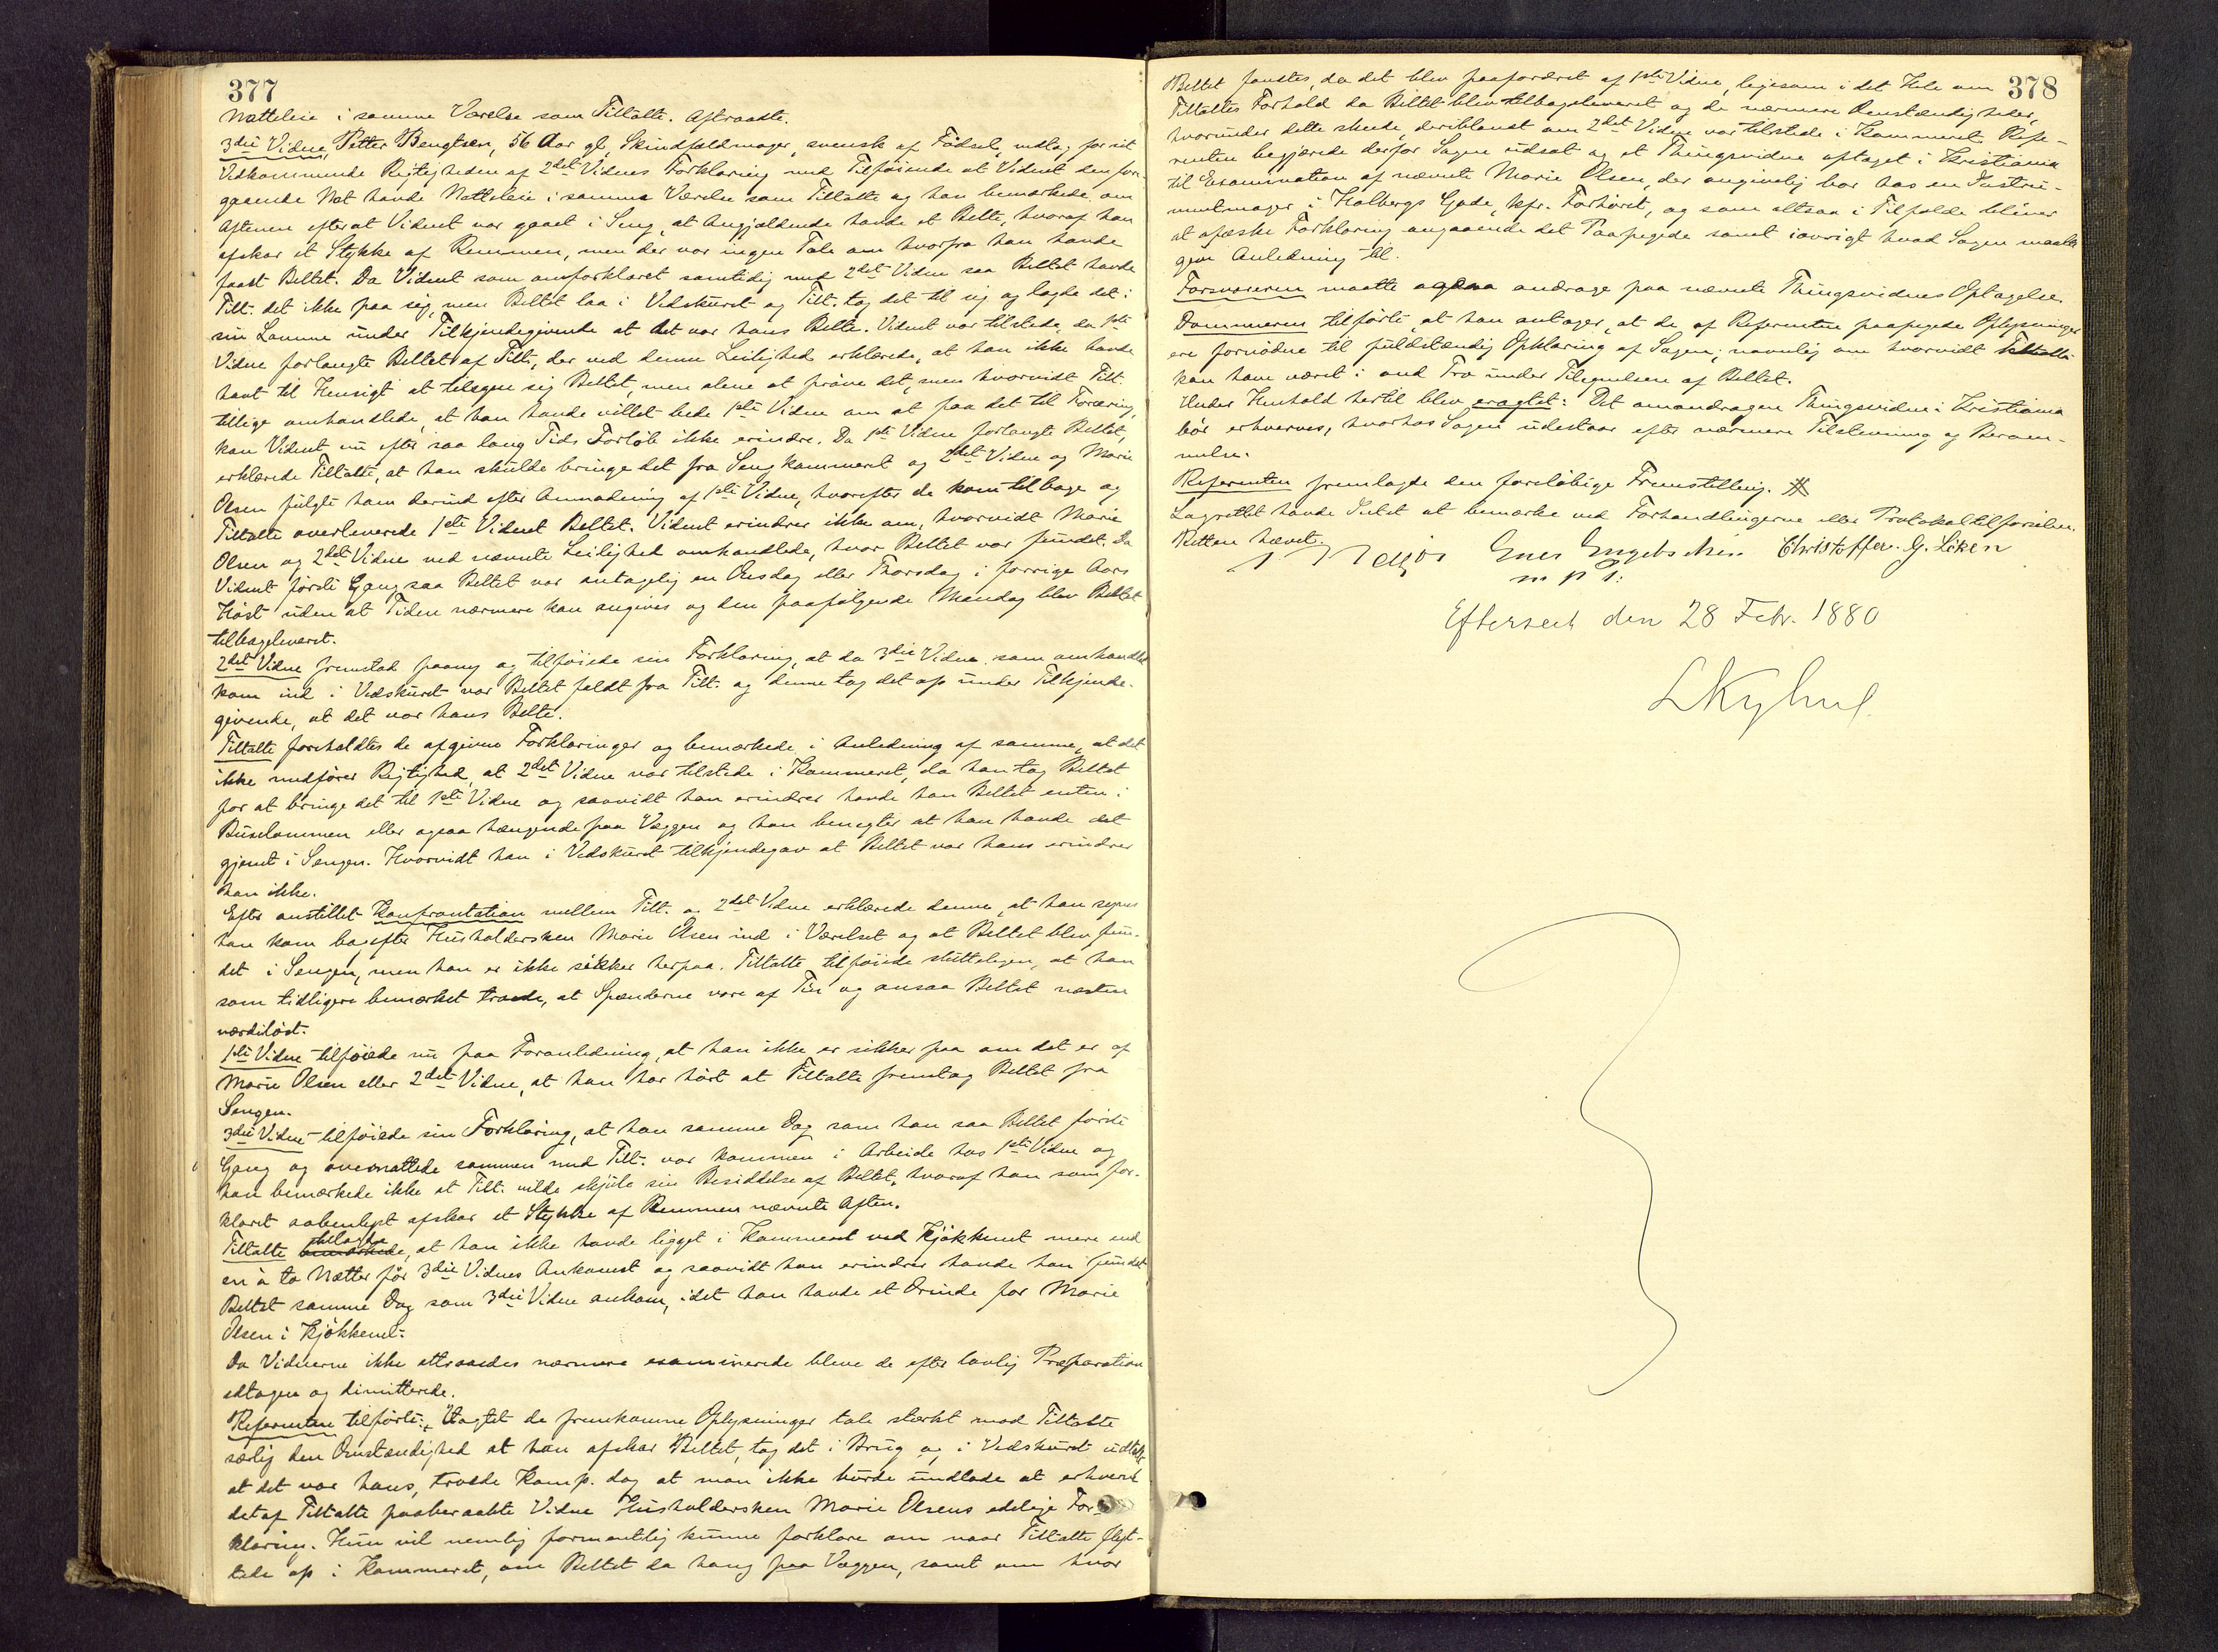 377
Natteleie i samme Værelse som Tiltalte. Aftraadte.
3die Vidne, Petter Bengtsen, 56 Aar gl, Skindfeldmager, svensk af Fødsel, vedtog for sit
Vedkommende Rigtigheden af 2det Vidnes Forklaring med Tilføiende at Vidnet den fore-
gaaende Nat havde Natteleie i samme Værelse som Tiltalte og han bemærkede om
Aftenen efterat Vidnet var gaaet i Seng, at Angjældende havde et Belte, hvoraf han
afskar et Stykke af Remmen, men der var ingen Tale om hvorfra han havde
faaet Beltet. Da Vidnet som omforklaret samtidig med 2det Vidne saa Beltet havde
Tilt. det ikke paa sig, men Beltet laa i Vedskuret og Tilt. tog det til sig og lagde det i
sin Lomme under Tilkjendegivende at det var hans Belte. Vidnet var tilstede, da 1ste
Vidne forlangte Beltet af Tilt., der ved denne Leilighed erklærede, at han ikke havde
havt til Hensigt at tilegne sig Beltet, men alene at prøve det, men hvorvidt Tilt.
tillige omhandlede, at han havde villet bede 1ste Vidne om at faa det til Foræring,
kan Vidnet nu efter saa lang Tids Forløb ikke erindre. Da 1ste Vidne forlangte Beltet,
erklærede Tiltalte, at han skulde bringe det fra Sengkammeret og 2det Vidne og Marie
Olsen fulgte ham derind efter Anmodning af 1ste Vidne, hvorefter de kom tilbage og
Tiltalte overleverede 1ste Vidnet Beltet. Vidnet erindrer ikke om, hvorvidt Marie
Olsen og 2det Vidne ved nævnte Leilighed omhandlede, hvor Beltet var fundet. Da
Vidnet første Gang saa Beltet var antagelig en Onsdag eller Thorsdag i forrige Aars
Høst uden at Tiden nærmere kan angives og den paafølgende Mandag blev Beltet
tilbageleveret.
2det Vidne fremstod paany og tilføiede sin Forklaring, at da 3die Vidne som omhandlet
kom ind i Vedskuret var Beltet faldt fra Tilt. og denne tog det op under Tilkjende-
givende, at det var hans Belte.
Tiltalte foreholdtes de afgivne Forklaringer og bemærkede i Anledning af samme, at det
ikke medfører Rigtighed, at 2det Vidne var tilstede i Kammeret, da han tog Beltet
for at bringe det til 1ste Vidne og saavidt han erindrer havde han Beltet enten i
Buxelommen eller ogsaa hængende paa Væggen og han benegter at han havde det
gjemt i Sengen. Hvorvidt han i Vedskuret tilkjendegav at Beltet var hans erindrer
han ikke.
Efter anstillet Konfrontation mellem Tilt. og 2det Vidne erklærede denne, at han synes
han kom bagefter Husholdersken Marie Olsen ind i Værelset og at Beltet blev fun-
det i Sengen, men han er ikke sikker herpaa. Tiltalte tilføiede slutteligen, at han
som tidligere bemærket troede, at Spænderne vare af Tin og ansaa Beltet næsten
værdiløst.
1ste Vidne tilføiede nu paa Foranledning, at han ikke er sikker paa om det er af
Marie Olsen eller 2det Vidne, at han har hørt at Tiltalte fremtog Beltet fra
Sengen.
3die Vidne tilføiede sin Forklaring, at han samme Dag som han saa Beltet første
Gang og overnattede sammen med Tilt. var kommen i Arbeide hos 1ste Vidne og
han bemærkede ikke at Tilt. vilde skjule sin Besiddelse af Beltet, hvoraf han som for-
klaret aabenlyst afskar et Stykke af Remmen nævnte Aften.
Tiltalte bemærkede tillagde, at han ikke havde ligget i Kammeret ved Kjøkkenet mere end
en à to Nætter før 3die Vidnes Ankomst og saavidt han erindrer havde han fundet
Beltet samme Dag som 3die Vidne ankom, idet han havde et Ærinde for Marie
Olsen i Kjøkkenet.
Da Vidnerne ikke attraaedes nærmere examinerede bleve de efter lovlig Præparation
edtagne og dimitterede.
Referenten tilførte: Uagtet de fremkomne Oplysninger tale stærkt mod Tiltalte
særlig den Omstændighed at han afskar Beltet, tog det i Brug og i Vedskuret udtalte
at det var hans, troede Komp. dog at man ikke burde undlade at erhverve
det af Tiltalte paaberaabte Vidne Husholdersken Marie Olsens edelige For-
klaring. Hun vil nemlig formentlig kunne forklare om naar Tiltalte flyt-
tede op i Kammeret, om Beltet da hang paa Væggen, samt om hvor
378
Beltet fandtes, da det blev paafordret af 1ste Vidne, ligesom i det Hele om
Tiltaltes Forhold da Beltet blev tilbageleveret og de nærmere Omstændigheder,
hvorunder dette skeede, deriblandt om 2det Vidne var tilstede i Kammeret. Refe-
renten begjærede derfor Sagen udsat og et Thingsvidne optaget i Kristiania
til Examination af nævnte Marie Olsen, der angivelig bor hos en Instru-
mentmager i Holbergs Gade, kfr. Forhøret, og som altsaa i Tilfælde bliver
at afæske Forklaring angaaende det Paapegede samt iøvrigt hvad Sagen maatte
give Anledning til.
Forsvareren maatte ogsaa andrage paa nævnte Thingsvidnes Optagelse.
Dommeren tilførte, at han antager, at de af Referenten paapegede Oplysninger
ere fornødne til fuldstændig Opklaring af Sagen, navnlig om hvorvidt Tiltalte
kan have været i ond Tro under Tilegnelsen af Beltet.
Under Henhold hertil blev eragtet: Det omandragne Thingsvidne i Kristiania
bør erhverves, hvorhos Sagen udestaar efter nærmere Tilstevning og Beram-
melse.
Referenten fremlagde den foreløbige Fremstilling.
Lagrettet havde Intet at bemærke ved Forhandlingerne eller Protokoltilførslen.
Retten hævet.
Engebretsen Christoffer. G. Liken
m p P:
Efterseet den 28 Febr. 1880